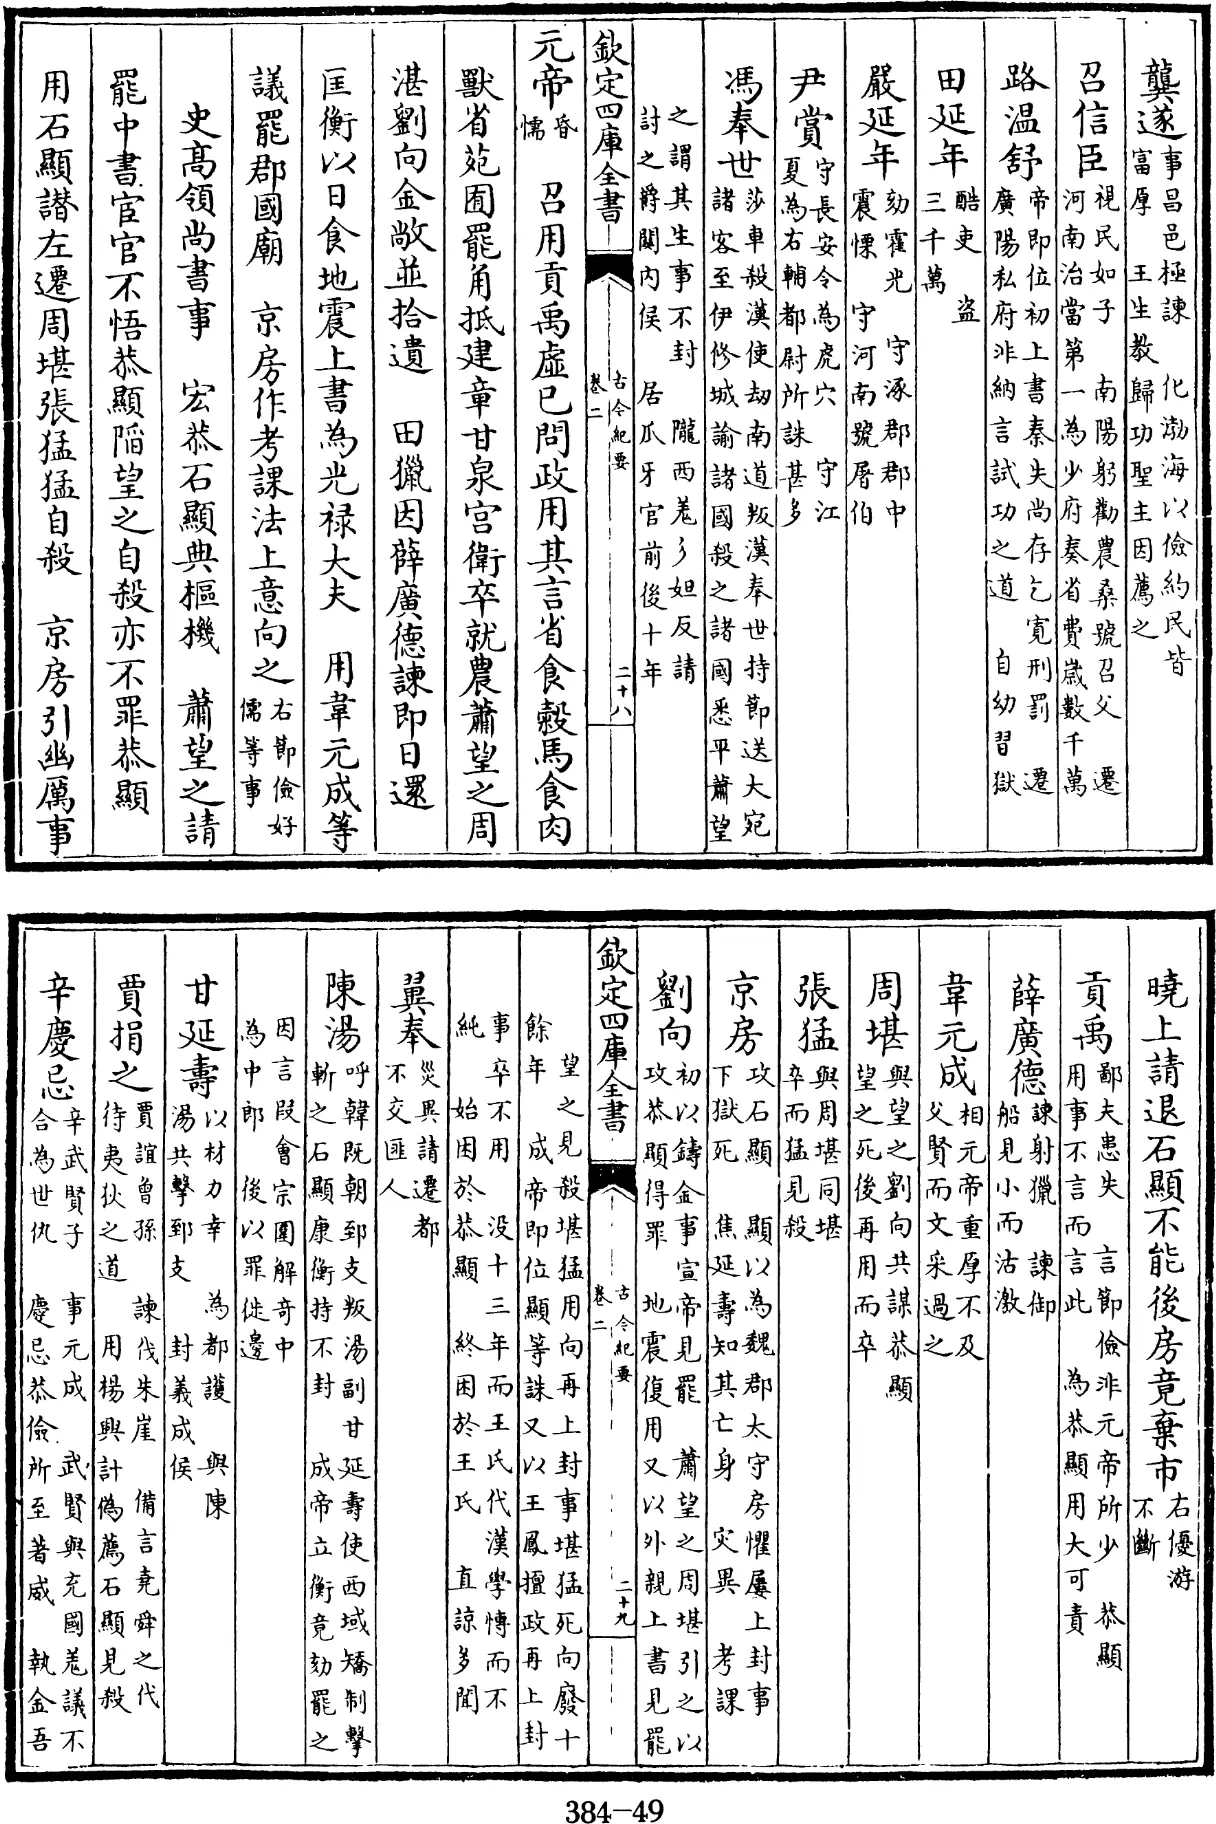 龔遂事昌邑極諫　化渤海以儉約民皆
富厚　王生教歸功聖主因薦之
召信臣視民如子　南陽躬勸農桑號召父　遷
河南治當第一為少府奏省費歲數千萬
路温舒帝即位初上書秦失尚存乞寛刑罰　遷
廣陽私府非納言試功之道　自幼習獄
田延年酷吏　盗
三千萬
嚴延年劾霍光　守涿郡郡中
震慄　守河南號屠伯
尹賞守長安令為虎穴　守江
夏為右輔都尉所誅甚多
馮奉世莎車殺漢使劫南道叛漢奉世持節送大宛
諸客至伊修城諭諸國殺之諸國悉平蕭望
之謂其生事不封　隴西羌彡姐反請
討之爵關內侯　居爪牙官前後十年
欽定四庫全書　古今紀要　卷二　二十八
元帝昏
懦　召用貢禹虛已問政用其言省食穀馬食肉
獸省苑囿罷角抵建章甘泉宫衛卒就農蕭望之周
湛劉向金敞並拾遺　田獵因薛廣德諫即日還
匡衡以日食地震上書為光禄大夫　用韋元成等
議罷郡國廟　京房作考課法上意向之右節儉好
儒等事
史高領尚書事　宏恭石顯典樞機　蕭望之請
罷中書宦官不悟恭顯陷望之自殺亦不罪恭顯
用石顯譖左遷周堪張猛猛自殺　京房引幽厲事
曉上請退石顯不能後房竟棄市右優游
不斷
貢禹鄙夫患失　言節儉非元帝所少　恭顯
用事不言而言此　為恭顯用大可責
薛廣德諫射獵　諫御
船見小而沽激
韋元成相元帝重厚不及
父賢而文采過之
周堪與望之劉向共謀恭顯
望之死後再用而卒
張猛與周堪同堪
卒而猛見殺
京房攻石顯　顯以為魏郡太守房懼屢上封事
下獄死　焦延壽知其亡身　災異　考課
劉向初以鑄金事宣帝見罷　蕭望之周堪引之以
攻恭顯得罪　地震復用又以外親上書見罷
欽定四庫全書　古今紀要　卷二　二十九
望之見殺堪猛用向再上封事堪猛死向廢十
餘年　成帝即位顯等誅又以王鳳擅政再上封
事卒不用　没十三年而王氏代漢學博而不
純　始困於恭顯　終困於王氏　直諒多聞
翼奉災異請遷都
不交匪人
陳湯呼韓既朝郅支叛湯副甘延壽使西域矯制擊
斬之石顯康衡持不封　成帝立衡竟劾罷之
因言段會宗圍解奇中
為中郎　後以罪徙邊
甘延壽以材力幸　為都護　與陳
湯共擊郅支　封義成侯
賈捐之賈誼曾孫　諫伐朱崖　備言堯舜之代
待夷狄之道　用楊興計偽薦石顯見殺
辛慶忌辛武賢子　事元成　武賢與充國羌議不
合為世仇　慶忌恭儉所至著威　執金吾
384—49